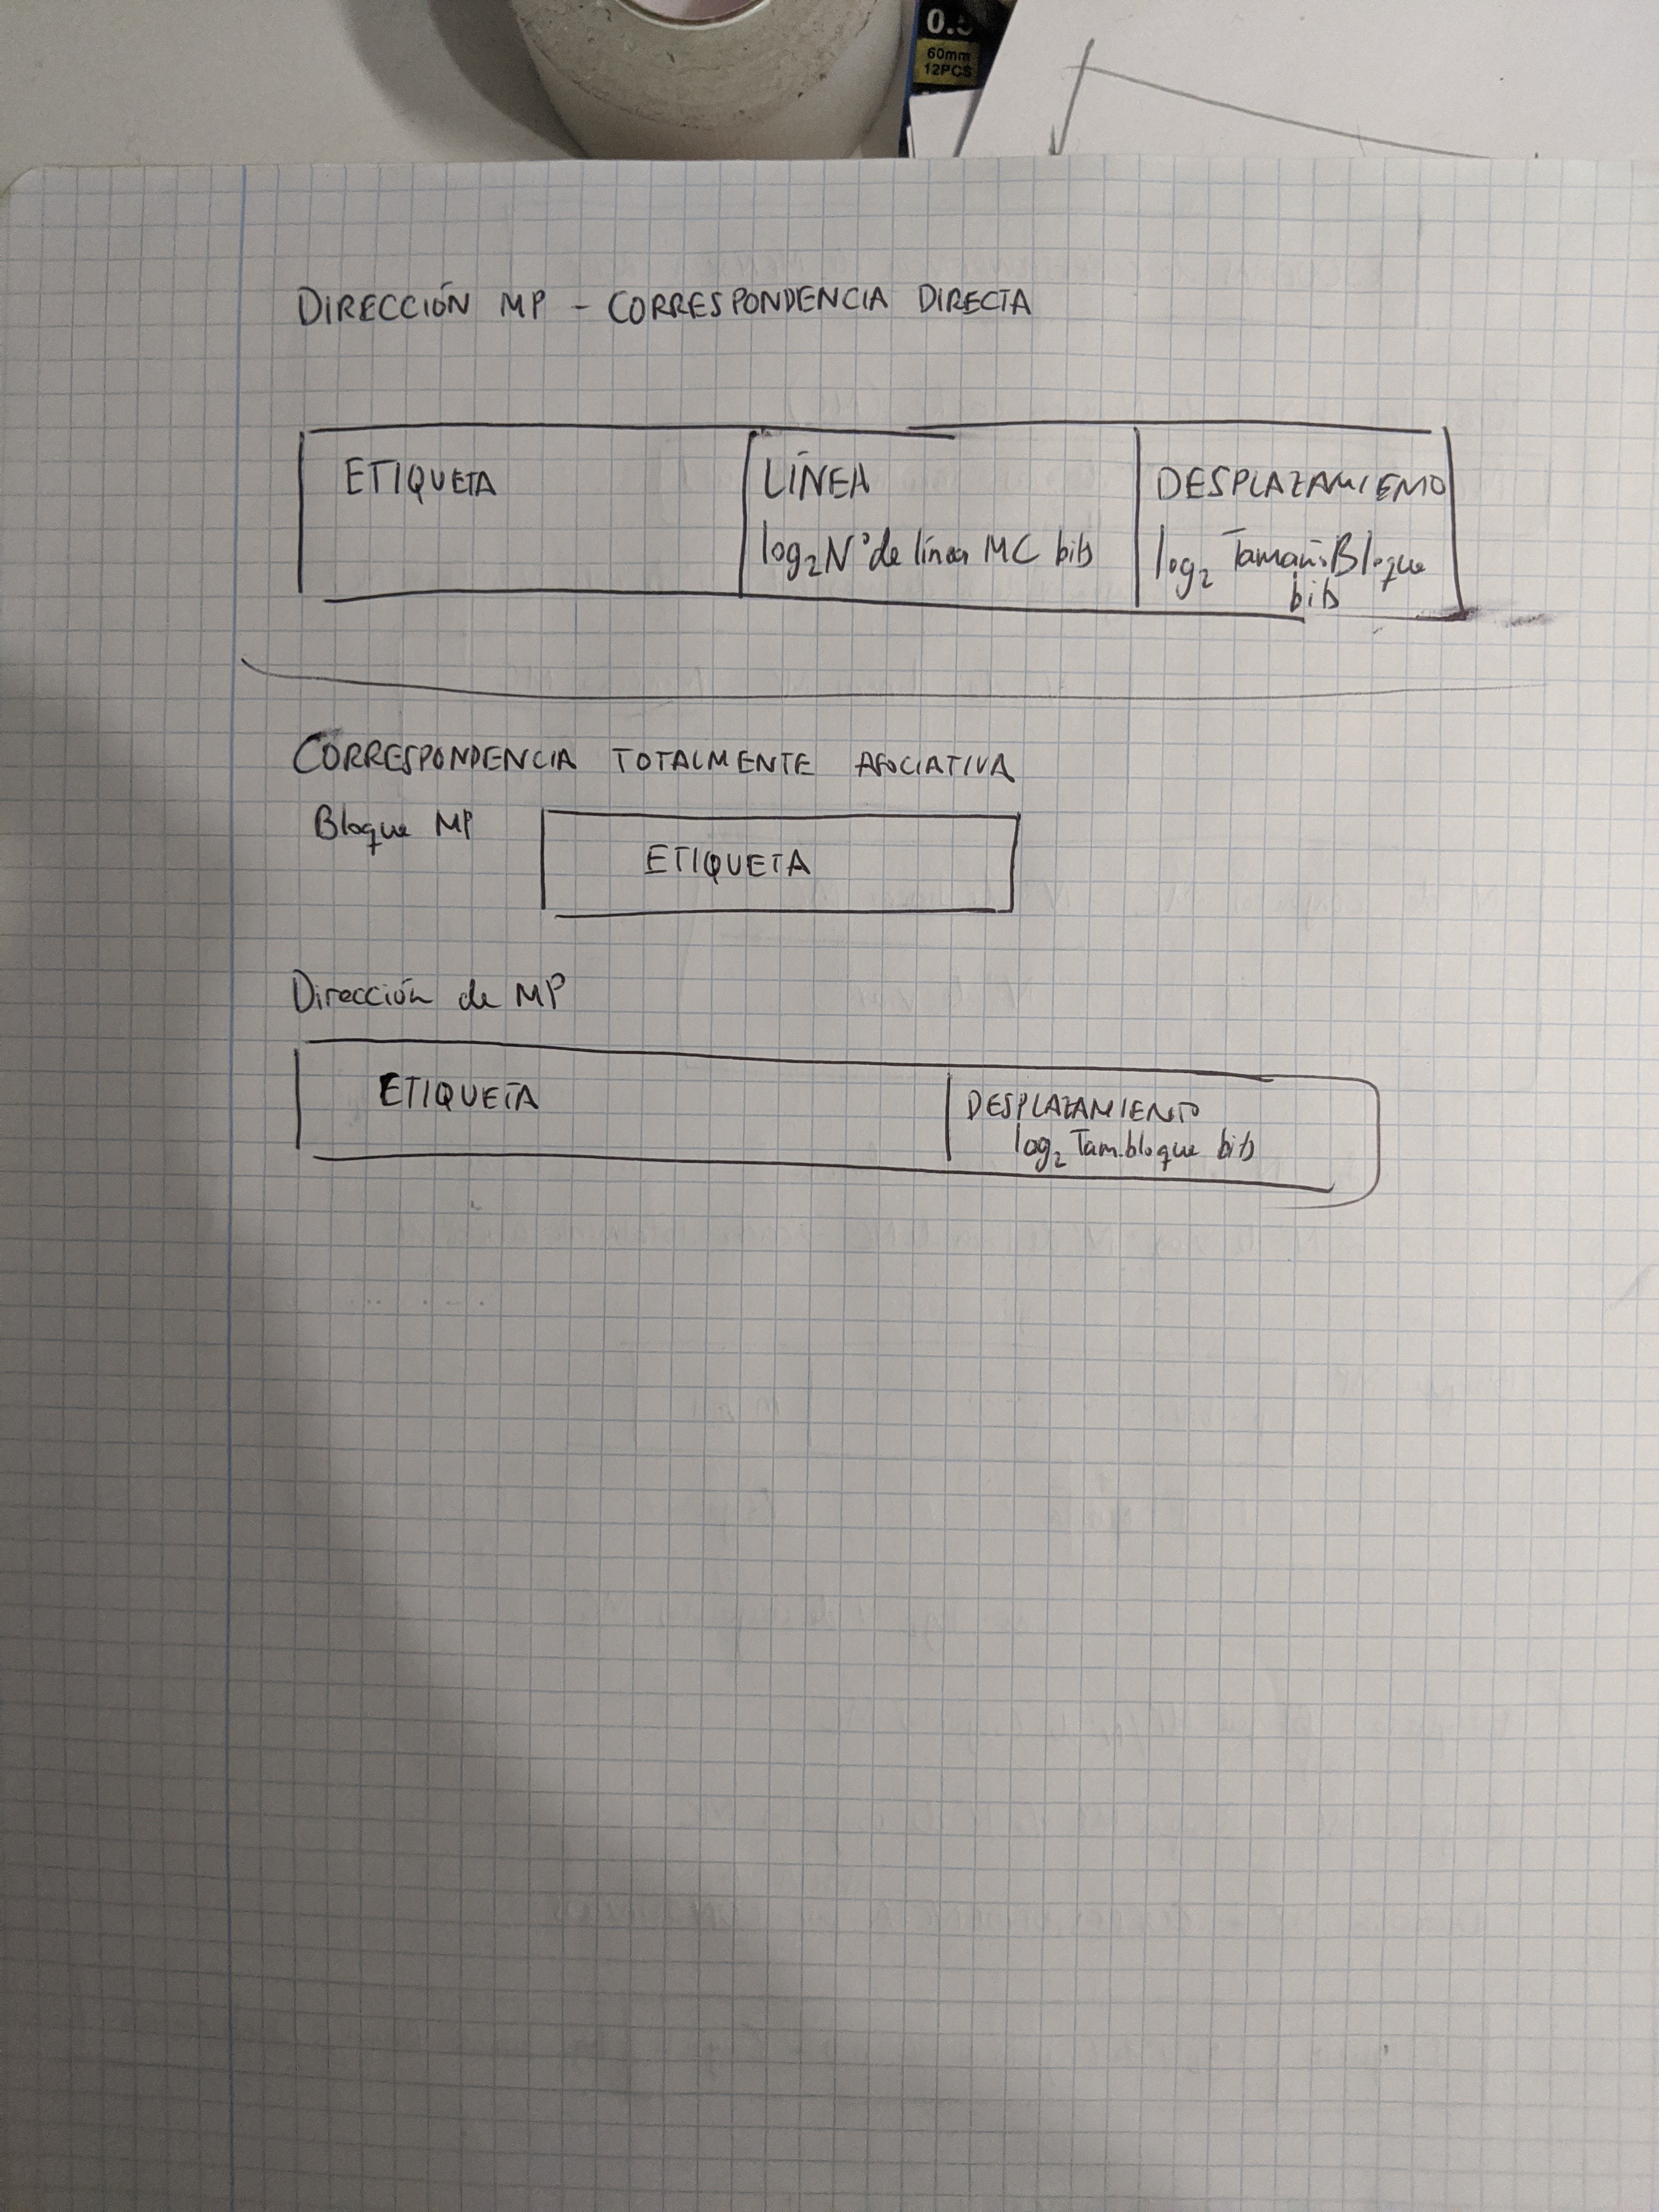 0.5
60mm
12PCS
DIRECCIÓN MP - CORRESPONDENCIA DIRECTA
ETIQUETA
LÍNEA
log₂ Nº de línea MC bits
DESPLAZAMIENTO
log₂ Tamaño Bloque
bits
CORRESPONDENCIA TOTALMENTE ASOCIATIVA
Bloque MP
ETIQUETA
Dirección de MP
ETIQUETA
DESPLAZAMIENTO
log₂ Tam. bloque bits